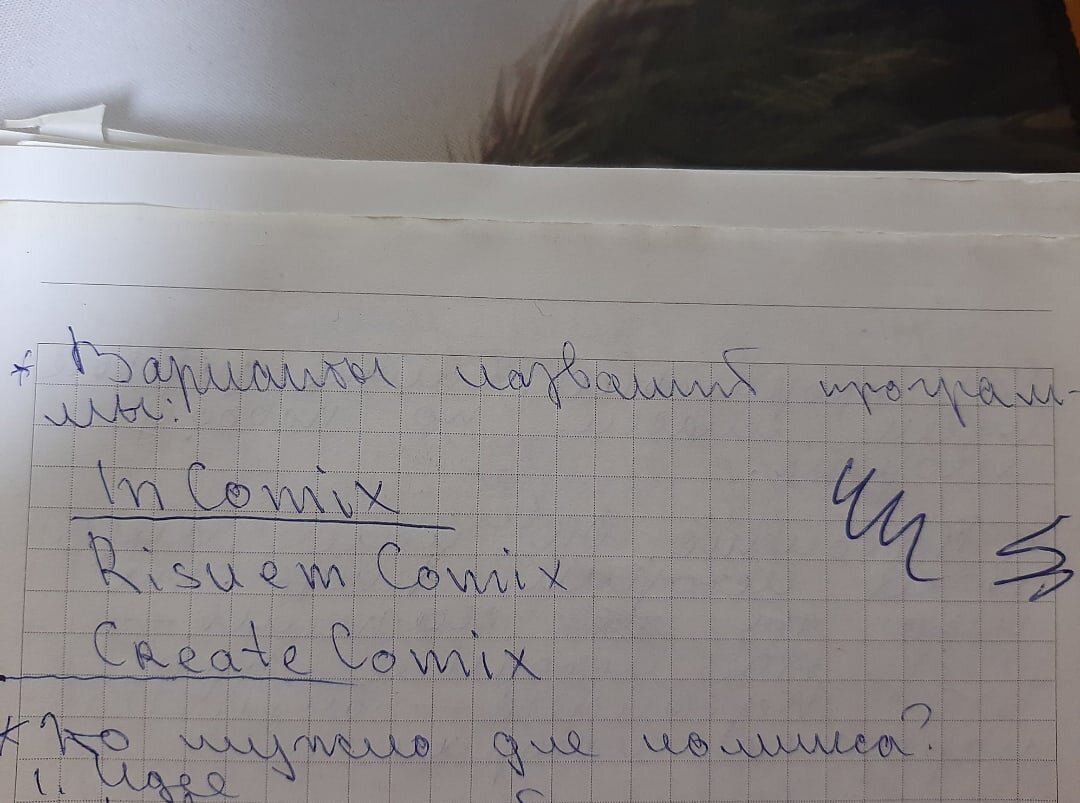 * Варианты названий програм-
мы:
In Comix
Risuem Comix
Create Comix
* Что нужно для комикса?
1. Идея